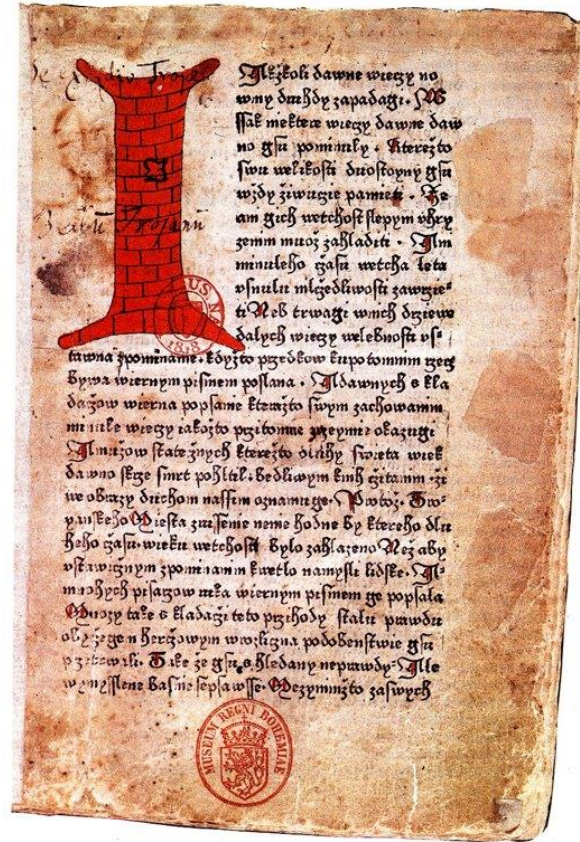 Ilkżkoli dawne wieczy no
wmy druhdy zapadagi. W
ssak niektere wieczy dawne daw
no gsu pominuly. Kterezto
swu welikosti duostoyny gsu
wżdy żiwucie pamieti. Ze
am gich wetchost slepym vhry
zenim muoż zahladiti. Am
minuleho cżasu wetcha leta
vsnulu mlcżedliwosti zawrzie-
ti Neb trwagi wnich drziewe
dalych wieczy welebnosti vs-
tawna zpominanie. kdyżto przedkow kupotomnim rzecż
bywa wiernym pismem poslana. A dawnych s kla
daczow wierna popsanie kterażto swym zachowanim
minule wieczy iakożto przitomne przeymie okazugi
A mużow statecżnych kterezto dluhy swieta wiek
dawno skrze smrt pohltil. bedliwym knih cżitanim. żi
we obrazy duchom nassim oznamuge. Protoż. Tro-
yanskeho Miesta zrusenie nenie hodne by ktereho dlu
heho cżasu. wieku wetchosti bylo zahlazeno Neż aby
vstawicżnym zpominanim kwetlo namysli lidske. A
mnohych pisarzow ruka wiernym pismem ge popsala
Mnozy take s kladacżi teto przihody stalu prawdu
obycżegem herczowym wrozlicżna podobenstwie gsu
przetworzili. Take że gsu s hledany neprawdy. Alle
wymysslene basnie sepsawsse. Mezynimiżto zaswych
MUSEUM REGNI BOHEMIAE